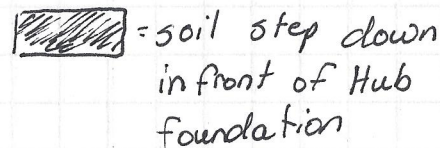 = soil step down
in front of Hub
foundation